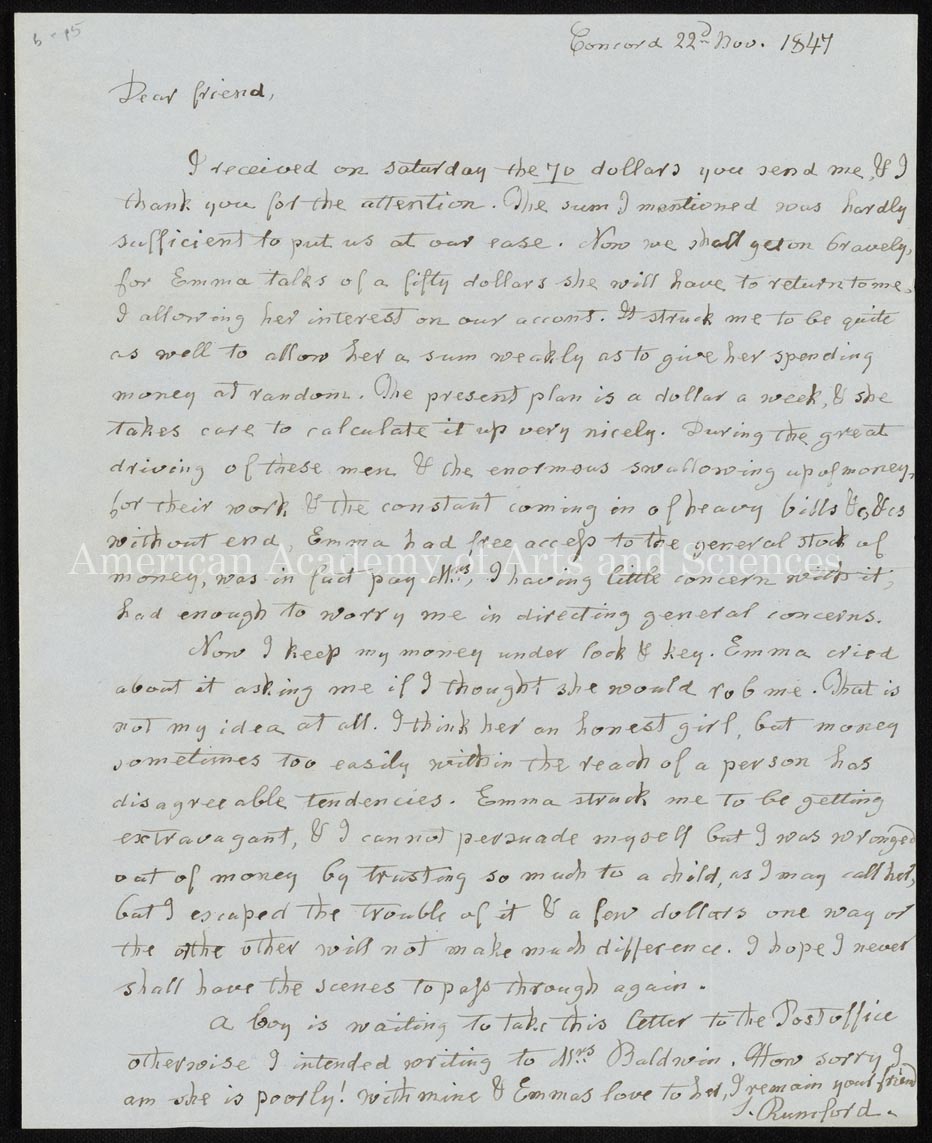 6-95
Concord 22d Nov. 1847
Dear friend,
I received on saturday the 70 dollars you send me, & I
thank you for the attention. The sum I mentioned was hardly
sufficient to put us at our ease. Now we shall get on bravely,
for Emma talks of a fifty dollars she will have to return to me,
I allowing her interest on our accont. It struck me to be quite
as well to allow her a sum weakly as to give her spending
money at random. The present plan is a dollar a week, & she
takes care to calculate it up very nicely. During the great
driving of these men & the enormous swallowing up of money,
for their work & the constant coming in of heavy bills &c, &cs
without end Emma had free access to the general stock of
American Academy of Arts and Sciences
money, was in fact pay Mrs, I having little concern with it;
had enough to worry me in directing general concerns.
Now I keep my money under lock & key. Emma cried
about it asking me if I thought she would rob me. That is
not my idea at all. I think her an honest girl, but money
sometimes too easily within the reach of a person has
disagreeable tendencies. Emma struck me to be getting
extravagant, & I cannot persuade myself but I was wronged
out of money by trusting so much to a child, as I may call her,
but I escaped the trouble of it & a few dollars one way or
the other will not make much difference. I hope I never
shall have the scenes to pass through again.
A boy is waiting to take this letter to the Postoffice
otherwise I intended writing to Mrs Baldwin. How sorry I
am she is poorly! with mine & Emmas love to her, I remain your friend
S. Rumford.